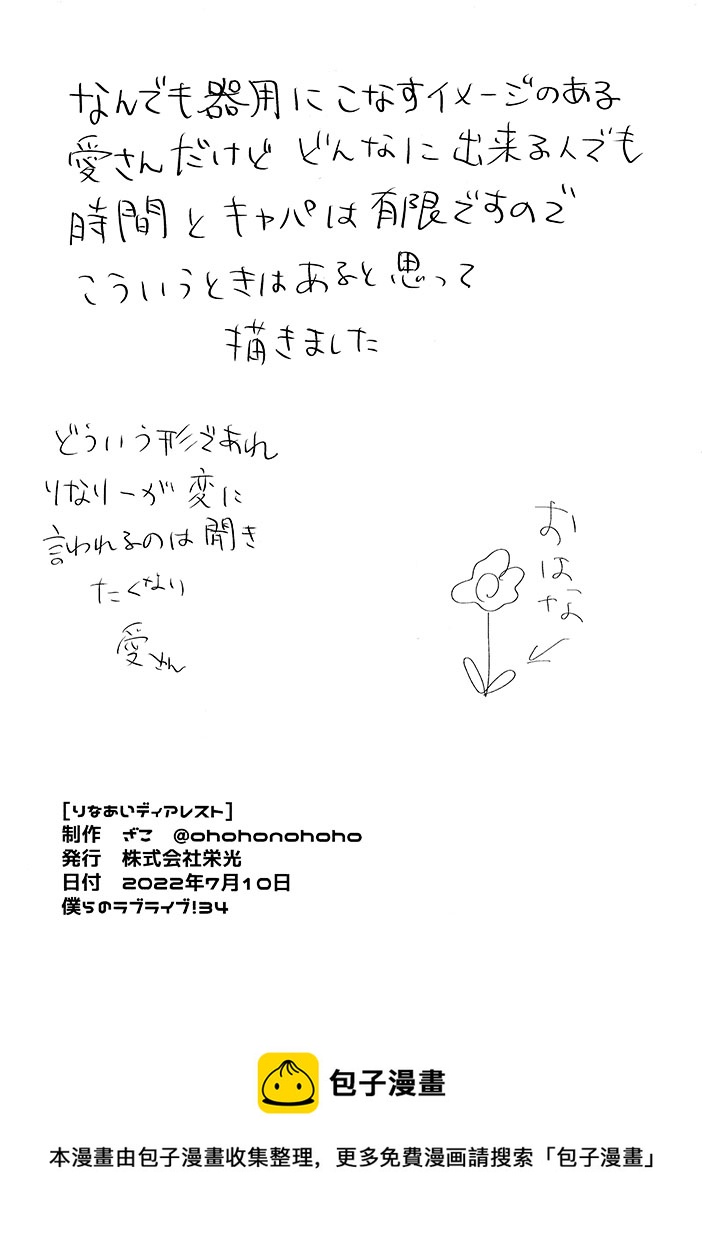 なんでも器用にこなすイメージのある
愛さんだけど どんなに出来る人でも
時間とキャパは有限ですので
こういうときはあると思って
描きました
どういう形であれ
りなりーが変に
言われるのは聞き
たくない
愛さん
おはな
[りなあいディアレスト]
制作 ざこ @ohohonohoho
発行 株式会社栄光
日付 2022年7月10日
僕らのラブライブ!34
包子漫畫
本漫畫由包子漫畫收集整理，更多免費漫画請搜索「包子漫畫」